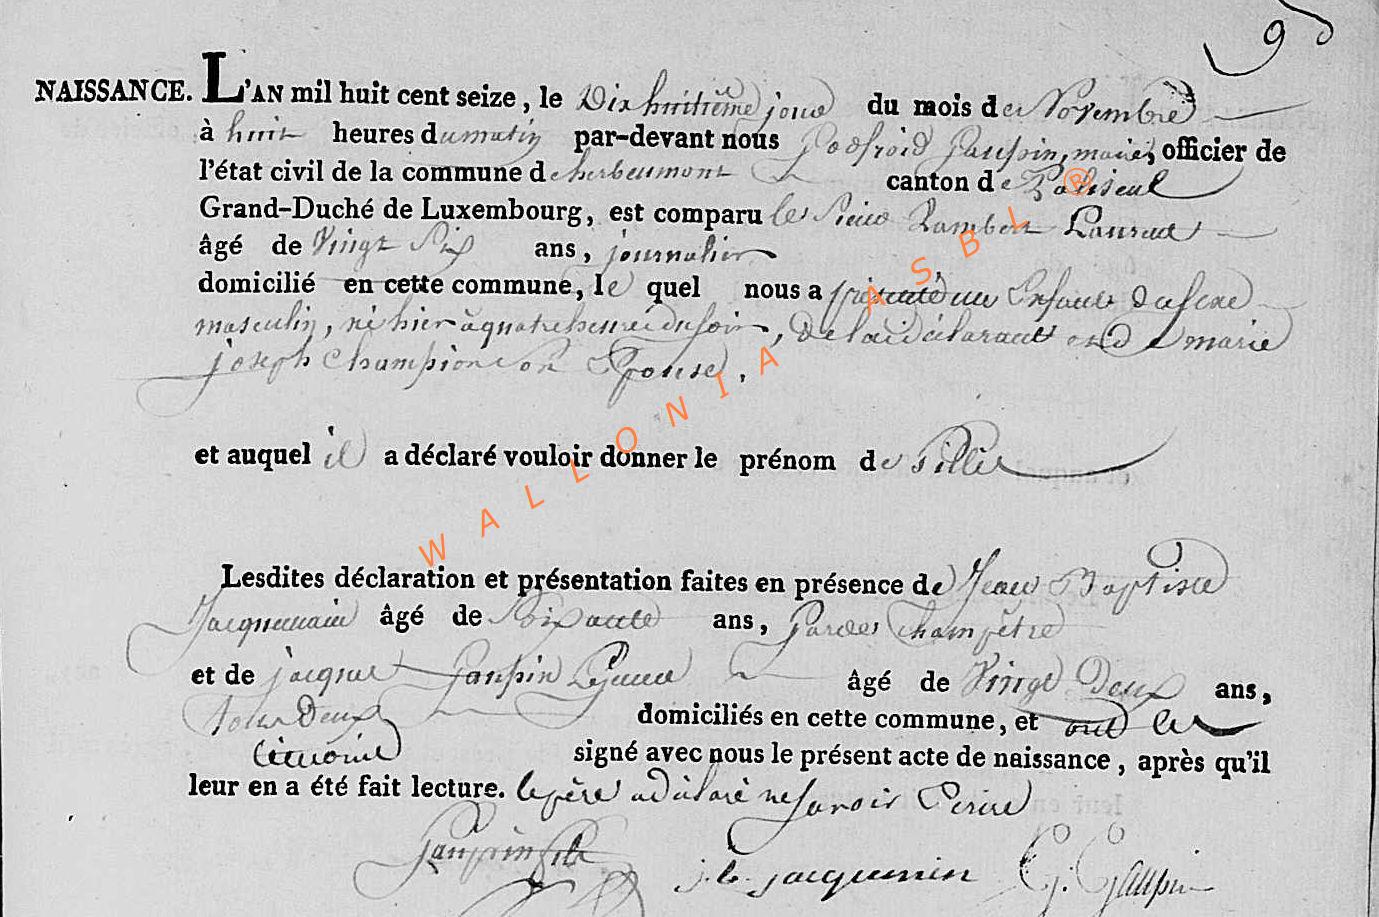 9
NAISSANCE. L'AN mil huit cent seize, le Dix huitième jour du mois de Novembre
à huit heures du matin par-devant nous Godfroid Paupin, maire, officier de
l'état civil de la commune de herbeumont canton de Paliseul
Grand-Duché de Luxembourg, est comparu le Sieur Lambert
âgé de Vingt Six ans, journalier
domicilié en cette commune, le quel nous a présenté un Enfant du sexe
masculin, né hier à quatre heures du soir, de lui déclarant et de marie
joseph Champion son Epouse,
et auquel il a déclaré vouloir donner le prénom de
Lesdites déclaration et présentation faites en présence de Jean Baptiste
Jacquemin âgé de Soixante ans, Garde Champêtre
et de jacques Paupin Lejeune âgé de Vingt Deux ans,
tous Deux domiciliés en cette commune, et ont les
témoins signé avec nous le présent acte de naissance, après qu'il
leur en a été fait lecture. le père a déclaré ne savoir Ecrire
Paupin j. b. jacquemin G. Gaupin
WALLONIA ASBL ®